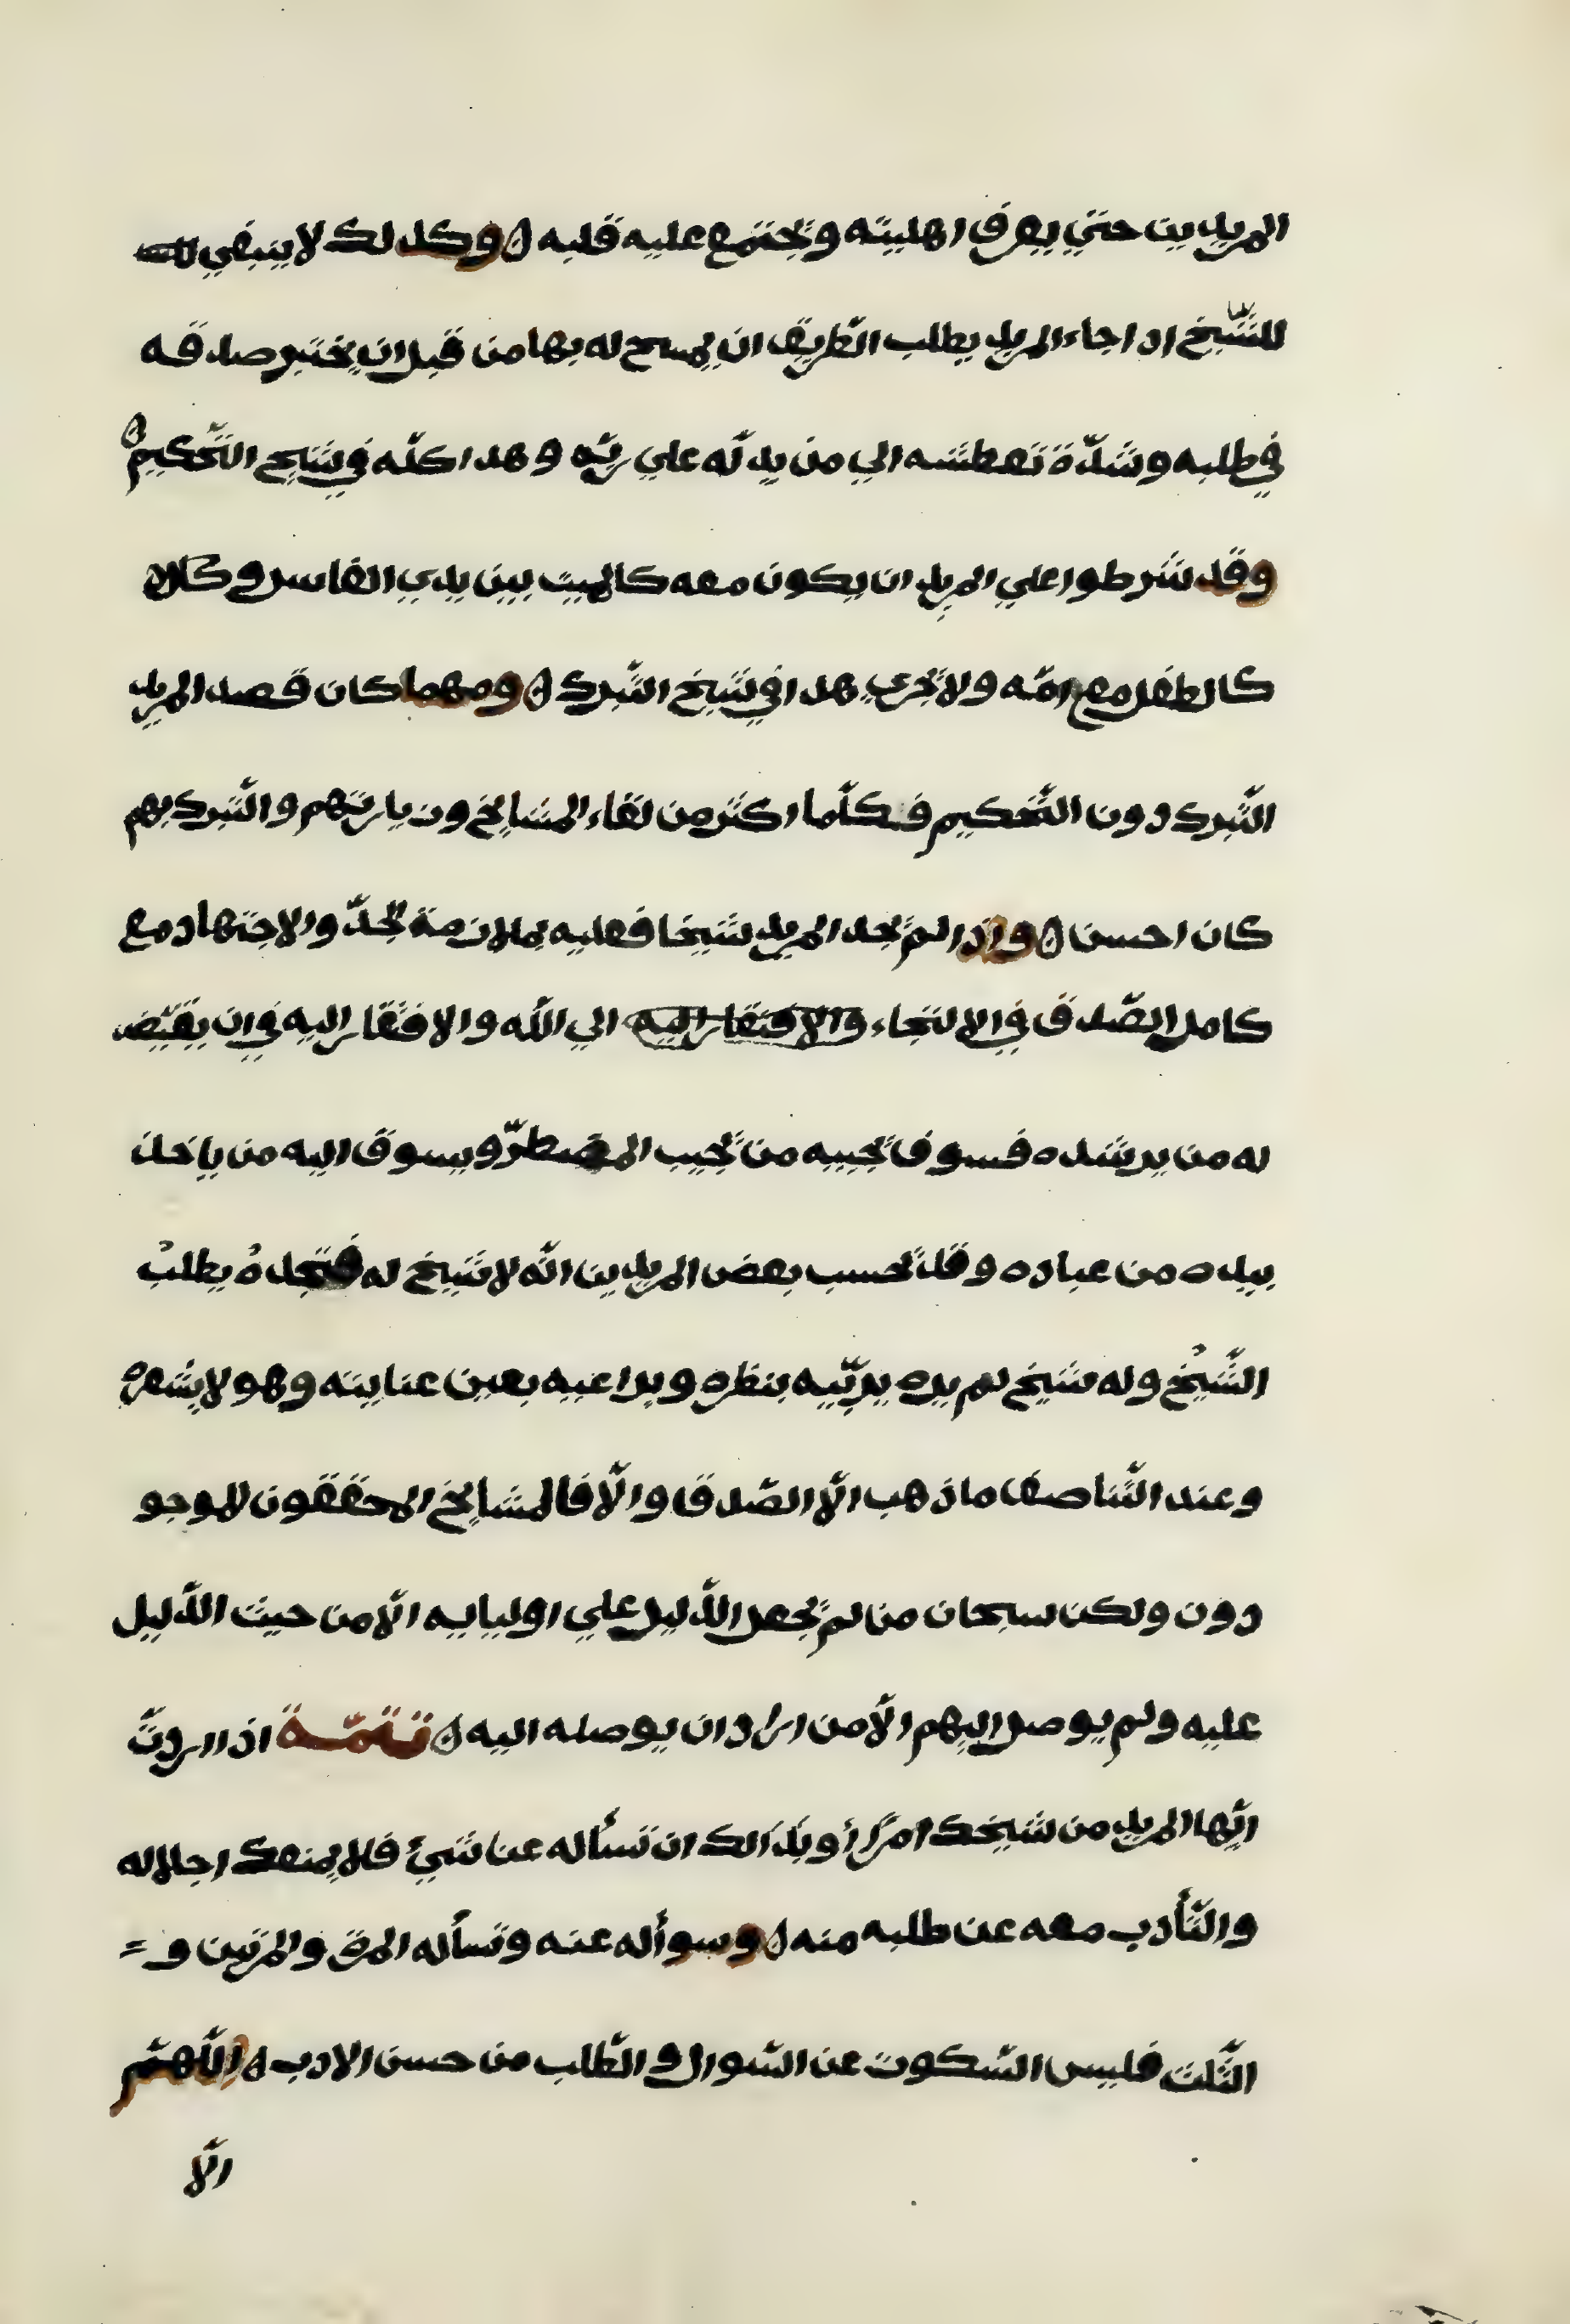 المريدين حتي يعرف اهليته وتجتمع عليه قلبه ۞ وكدلك لا ينبغي
للشّيخ ادا جاء المريد يطلب الطّريق ان يمسح له بها من قبل ان يختبر صدقه
في طلبه وشدّة تعطشه الي من يدلّه علي ربّه وهدا كلّه في شيح التّحكيم ۞
وقد شرطوا علي المريد ان يكون معه كالميت بين يدي الغاسل وكالا
كالطفل مع امّه ولا تجري هدا في شيخ التّبرك ۞ ومهما كان قصد المريد
التّبرك دون التّحكيم فكلّما اكثر من لقاء المشايخ وزيارتهم والتّبرك بهم
كان احسن ۞ واذا لم تجد المريد شيخا فعليه بملازمة الجدّ والاجتهاد مع
كامل الصّدق في الالتجاء والافتقار اليه الي الله والافتقار اليه في ان يقيّض
له من يرشده فسوف تجيبه من تجيب المضطرّ ويسوق اليه من ياخذ
بيده من عباده وقد تحسب بعض المريدين انّه لا شيخ له فتجدهُ يطلبُ
الشّيخُ وله شيخ لم يره يربّيه بنظره ويراعيه بعين عنايته وهو لا يشعر ۞
وعند التّناصف ما ذهب الّا الصّدق والّا فالمشايخ المحققون الموجو
دون ولكن سبحان من لم تجعل الدّليل علي اوليايه الّا من حيث الدّليل
عليه ولم يوصل اليهم الّا من اراد ان يوصله اليه ۞ تتمّة اذا اردتَّ
ايّها المريد من شيخك امرًا أو بَدَالك ان تسأله عن شيئ فلا يمنعك اجلاله
والتّأدب معه عن طلبه منه ۞ وسوأله عنه وتسأله المرة والمرتين و =
الثّلث فليس السّكوت عن السّوال والطّلب من حسن الادب ۞ اللّهمّ
الّا